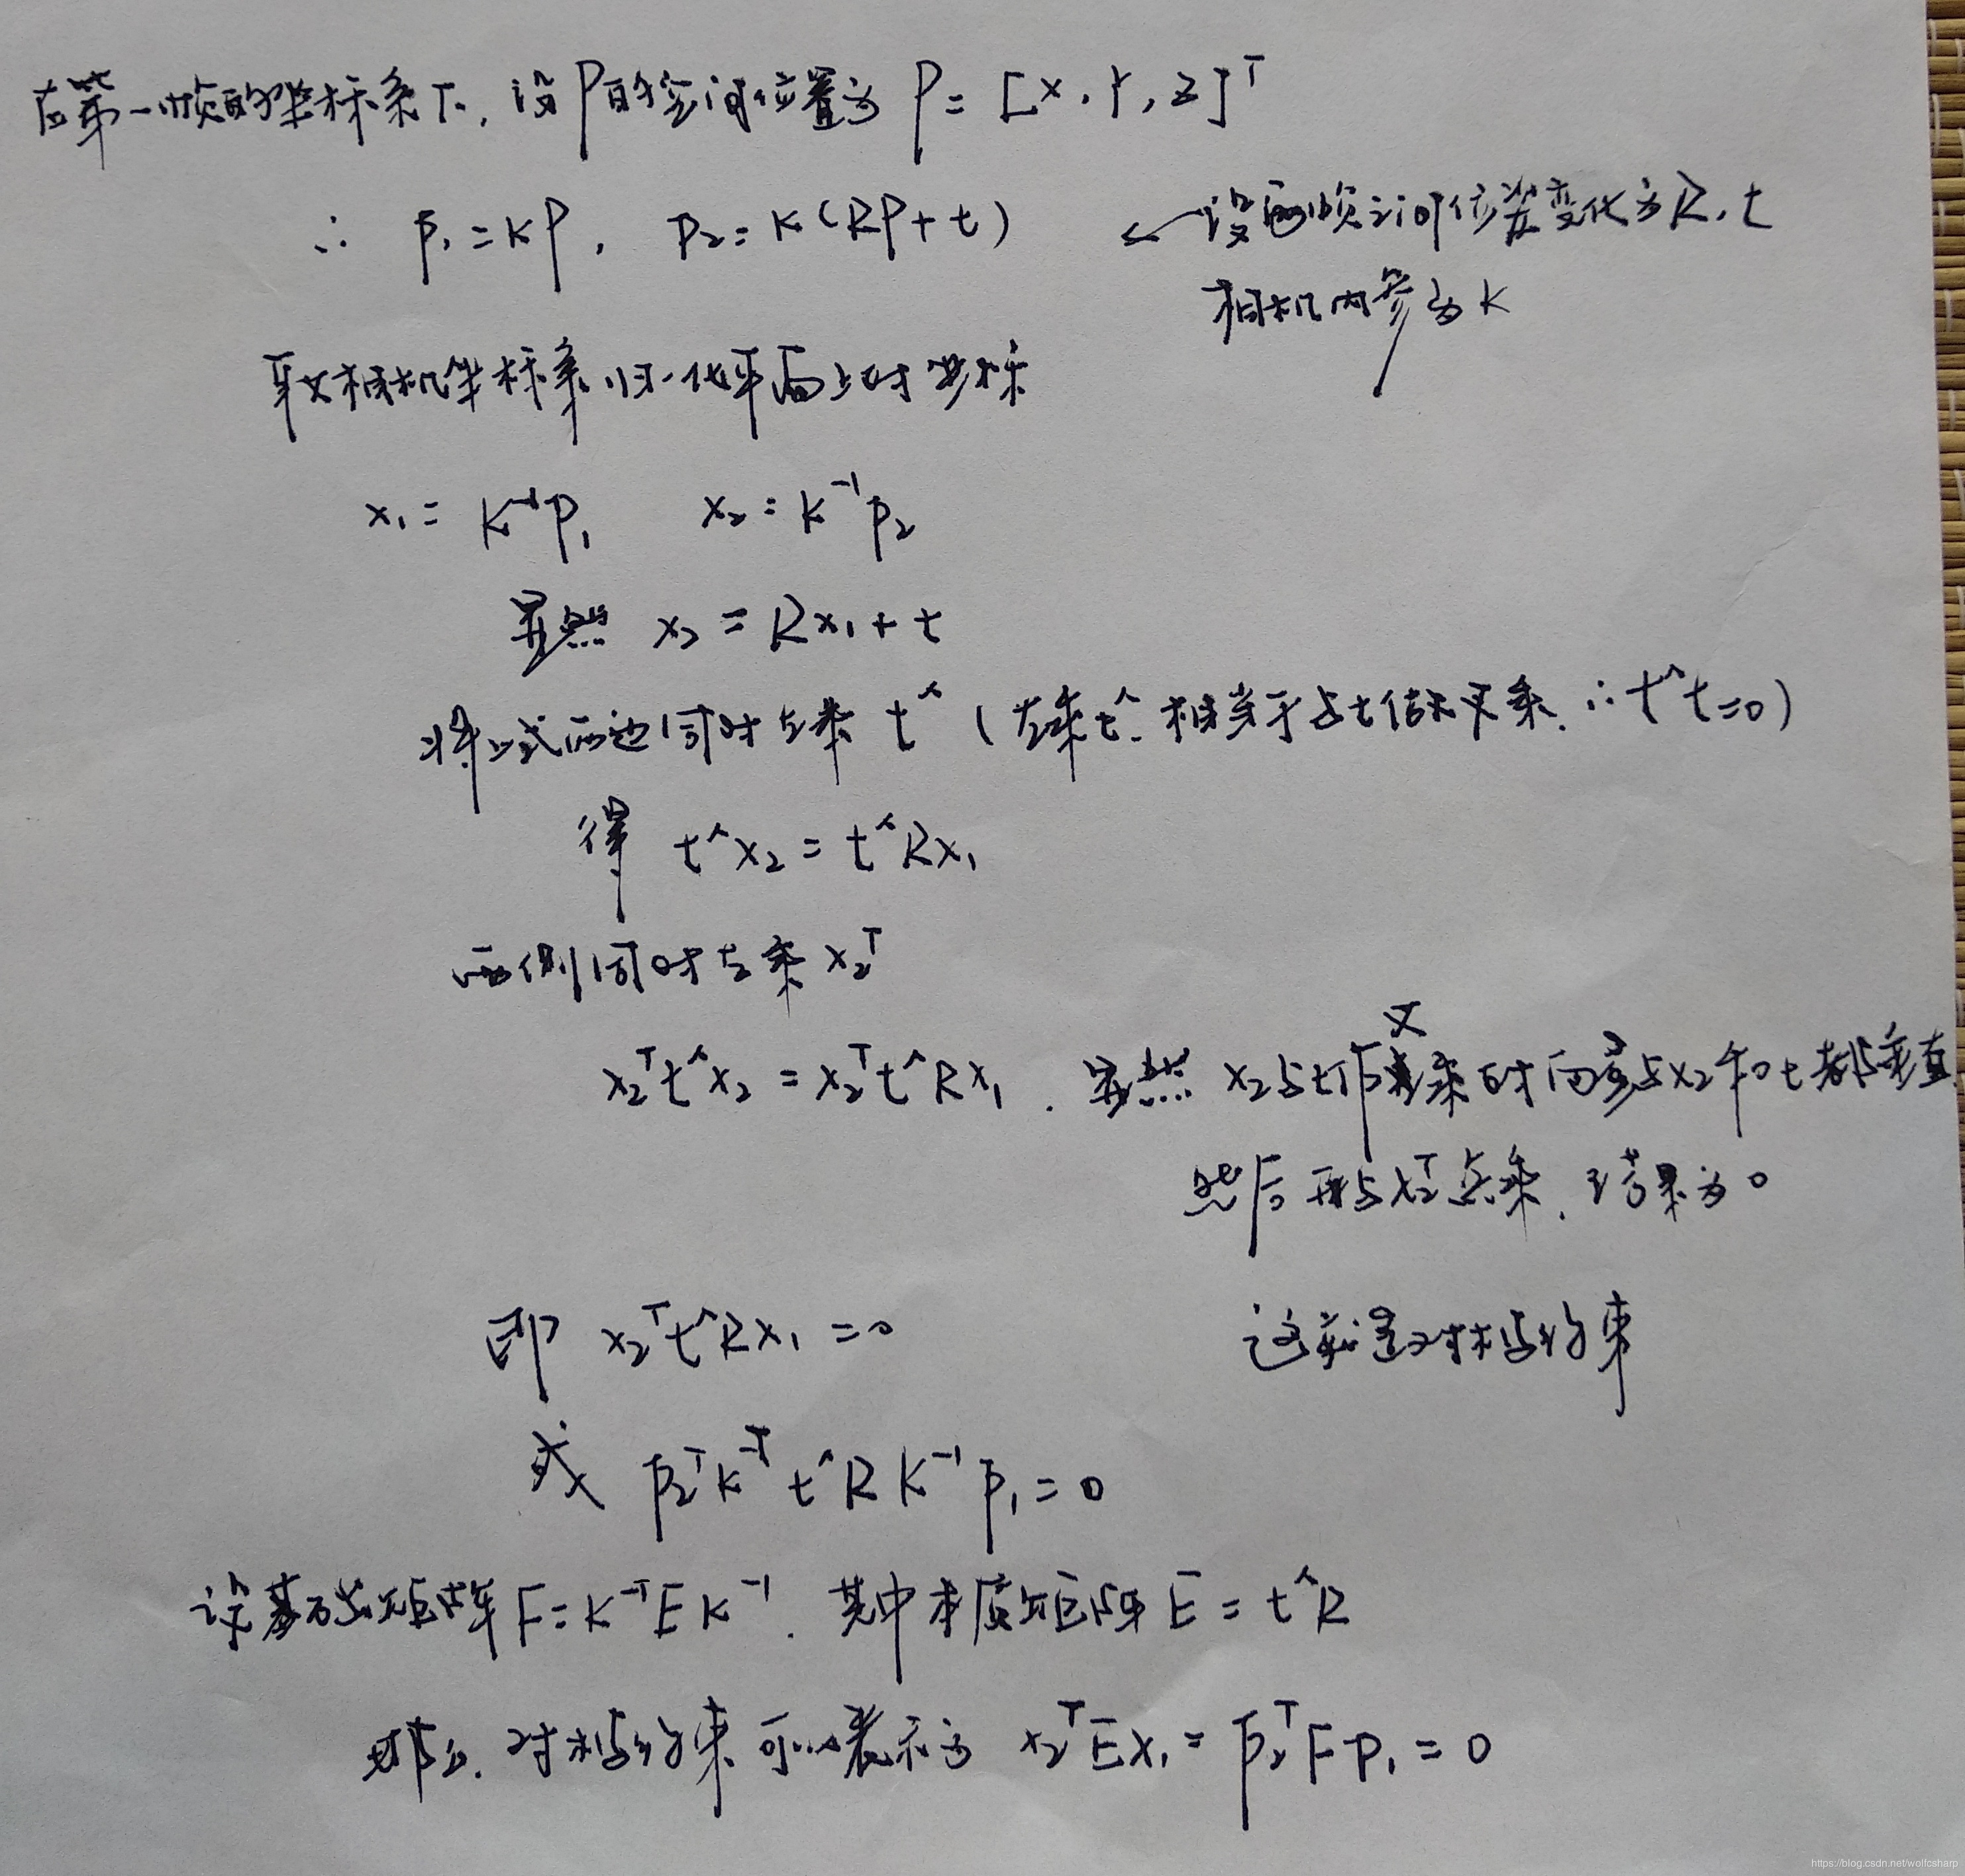 在第一帧的坐标系下, 设P的空间位置为 P = [X, Y, Z]ᵀ
∴ p₁ = KP, p₂ = K(RP + t) ← 设两帧之间位姿变化为R, t
相机内参为K
取相机坐标系归一化平面上的坐标
x₁ = K⁻¹p₁ x₂ = K⁻¹p₂
显然 x₂ = Rx₁ + t
将上式两边同时左乘 t^ (左乘t^相当于与t做叉乘, ∴ t^t=0)
得 t^x₂ = t^Rx₁
两侧同时左乘 x₂ᵀ
x₂ᵀt^x₂ = x₂ᵀt^Rx₁. 显然 x₂与t作叉乘时向量与x₂和t都垂直.
然后再与x₂ᵀ点乘, 结果为0
即 x₂ᵀt^Rx₁ = 0 这就是对极约束
或 p₂ᵀK⁻ᵀt^RK⁻¹p₁ = 0
设基础矩阵 F = K⁻ᵀEK⁻¹. 其中本质矩阵 E = t^R
那么, 对极约束可以表示为 x₂ᵀEx₁ = p₂ᵀFp₁ = 0
https://blog.csdn.net/wolfcsharp